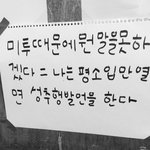 미투때문에뭔말을못하
겠다 = 나는평소입만열
면 성추행발언을 한다